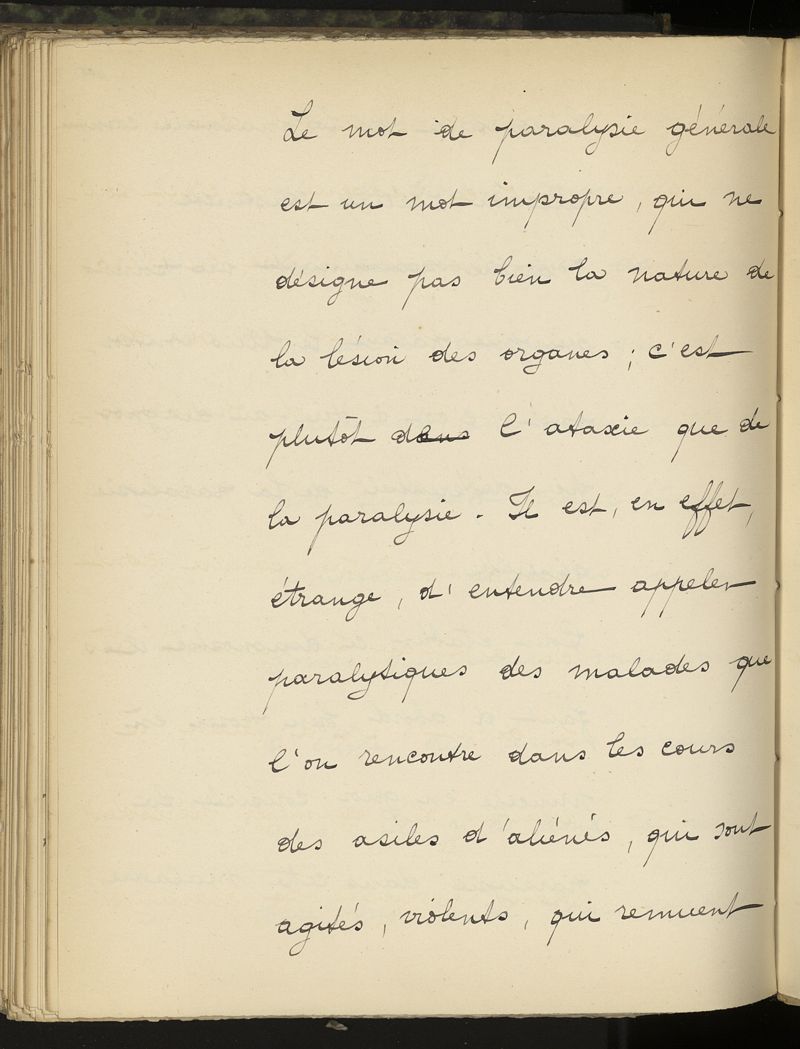 Le mot de paralysie générale
est un mot impropre, qui ne
désigne pas bien la nature de
la lésion des organes ; c'est
plutôt dans l'ataxie que de
la paralysie. Il est, en effet,
étrange, d'entendre appeler
paralytiques des malades que
l'on rencontre dans les cours
des asiles d'aliénés, qui sont
agités, violents, qui remuent